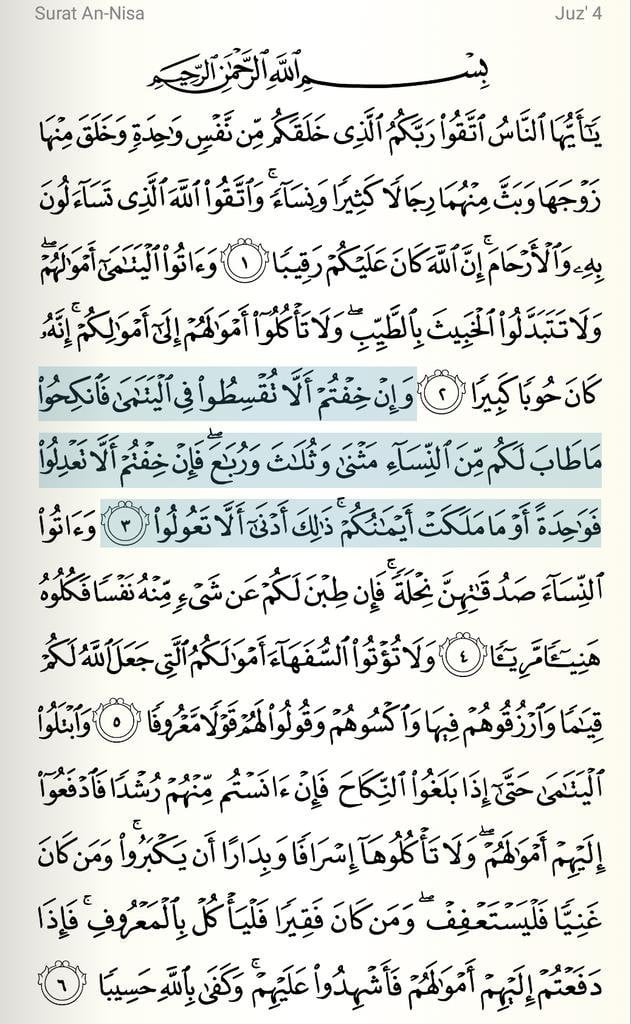 Surat An-Nisa Juz' 4
بِسْمِ ٱللَّهِ ٱلرَّحْمَٰنِ ٱلرَّحِيمِ
يَٰٓأَيُّهَا ٱلنَّاسُ ٱتَّقُوا۟ رَبَّكُمُ ٱلَّذِى خَلَقَكُم مِّن نَّفْسٍ وَٰحِدَةٍ وَخَلَقَ مِنْهَا
زَوْجَهَا وَبَثَّ مِنْهُمَا رِجَالًا كَثِيرًا وَنِسَآءً ۚ وَٱتَّقُوا۟ ٱللَّهَ ٱلَّذِى تَسَآءَلُونَ
بِهِۦ وَٱلْأَرْحَامَ ۚ إِنَّ ٱللَّهَ كَانَ عَلَيْكُمْ رَقِيبًا ١ وَءَاتُوا۟ ٱلْيَتَٰمَىٰٓ أَمْوَٰلَهُمْ ۖ
وَلَا تَتَبَدَّلُوا۟ ٱلْخَبِيثَ بِٱلطَّيِّبِ ۖ وَلَا تَأْكُلُوٓا۟ أَمْوَٰلَهُمْ إِلَىٰٓ أَمْوَٰلِكُمْ ۚ إِنَّهُۥ
كَانَ حُوبًا كَبِيرًا ٢ وَإِنْ خِفْتُمْ أَلَّا تُقْسِطُوا۟ فِى ٱلْيَتَٰمَىٰ فَٱنكِحُوا۟
مَا طَابَ لَكُم مِّنَ ٱلنِّسَآءِ مَثْنَىٰ وَثُلَٰثَ وَرُبَٰعَ ۖ فَإِنْ خِفْتُمْ أَلَّا تَعْدِلُوا۟
فَوَٰحِدَةً أَوْ مَا مَلَكَتْ أَيْمَٰنُكُمْ ۚ ذَٰلِكَ أَدْنَىٰٓ أَلَّا تَعُولُوا۟ ٣ وَءَاتُوا۟
ٱلنِّسَآءَ صَدُقَٰتِهِنَّ نِحْلَةً ۚ فَإِن طِبْنَ لَكُمْ عَن شَىْءٍ مِّنْهُ نَفْسًا فَكُلُوهُ
هَنِيٓـًٔا مَّرِيٓـًٔا ٤ وَلَا تُؤْتُوا۟ ٱلسُّفَهَآءَ أَمْوَٰلَكُمُ ٱلَّتِى جَعَلَ ٱللَّهُ لَكُمْ
قِيَٰمًا وَٱرْزُقُوهُمْ فِيهَا وَٱكْسُوهُمْ وَقُولُوا۟ لَهُمْ قَوْلًا مَّعْرُوفًا ٥ وَٱبْتَلُوا۟
ٱلْيَتَٰمَىٰ حَتَّىٰٓ إِذَا بَلَغُوا۟ ٱلنِّكَاحَ فَإِنْ ءَانَسْتُم مِّنْهُمْ رُشْدًا فَٱدْفَعُوٓا۟
إِلَيْهِمْ أَمْوَٰلَهُمْ ۖ وَلَا تَأْكُلُوهَآ إِسْرَافًا وَبِدَارًا أَن يَكْبَرُوا۟ ۚ وَمَن كَانَ
غَنِيًّا فَلْيَسْتَعْفِفْ ۖ وَمَن كَانَ فَقِيرًا فَلْيَأْكُلْ بِٱلْمَعْرُوفِ ۚ فَإِذَا
دَفَعْتُمْ إِلَيْهِمْ أَمْوَٰلَهُمْ فَأَشْهِدُوا۟ عَلَيْهِمْ ۚ وَكَفَىٰ بِٱللَّهِ حَسِيبًا ٦